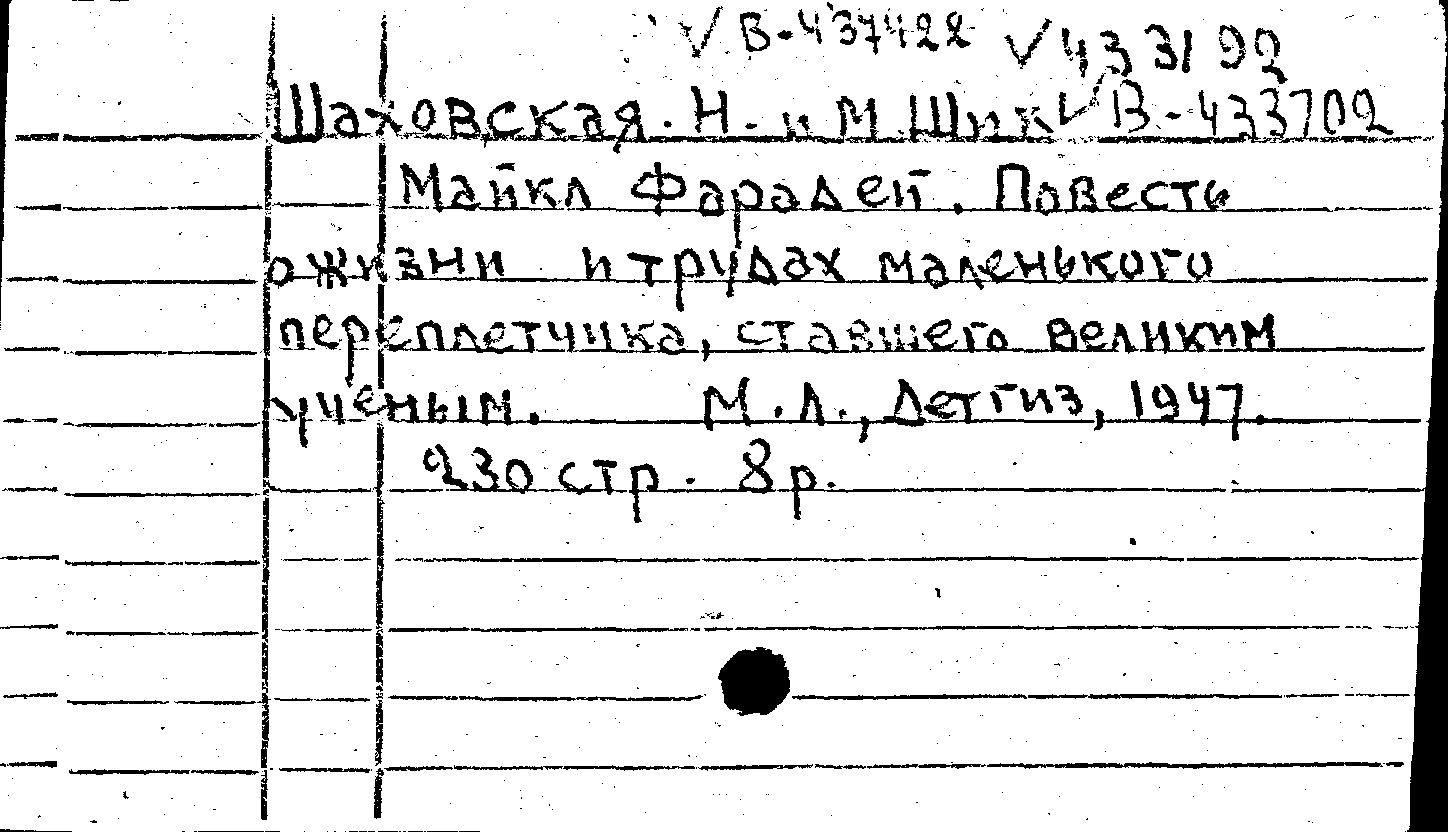 √ В-437422 √ 433192
Шаховская. Н. и М Шик √ В-433702
Майкл Фарадей. Повесть
о жизни и трудах маленького
переплетчика, ставшего великим
ученым. М.Л., Детгиз, 1947.
230 стр. 8 р.